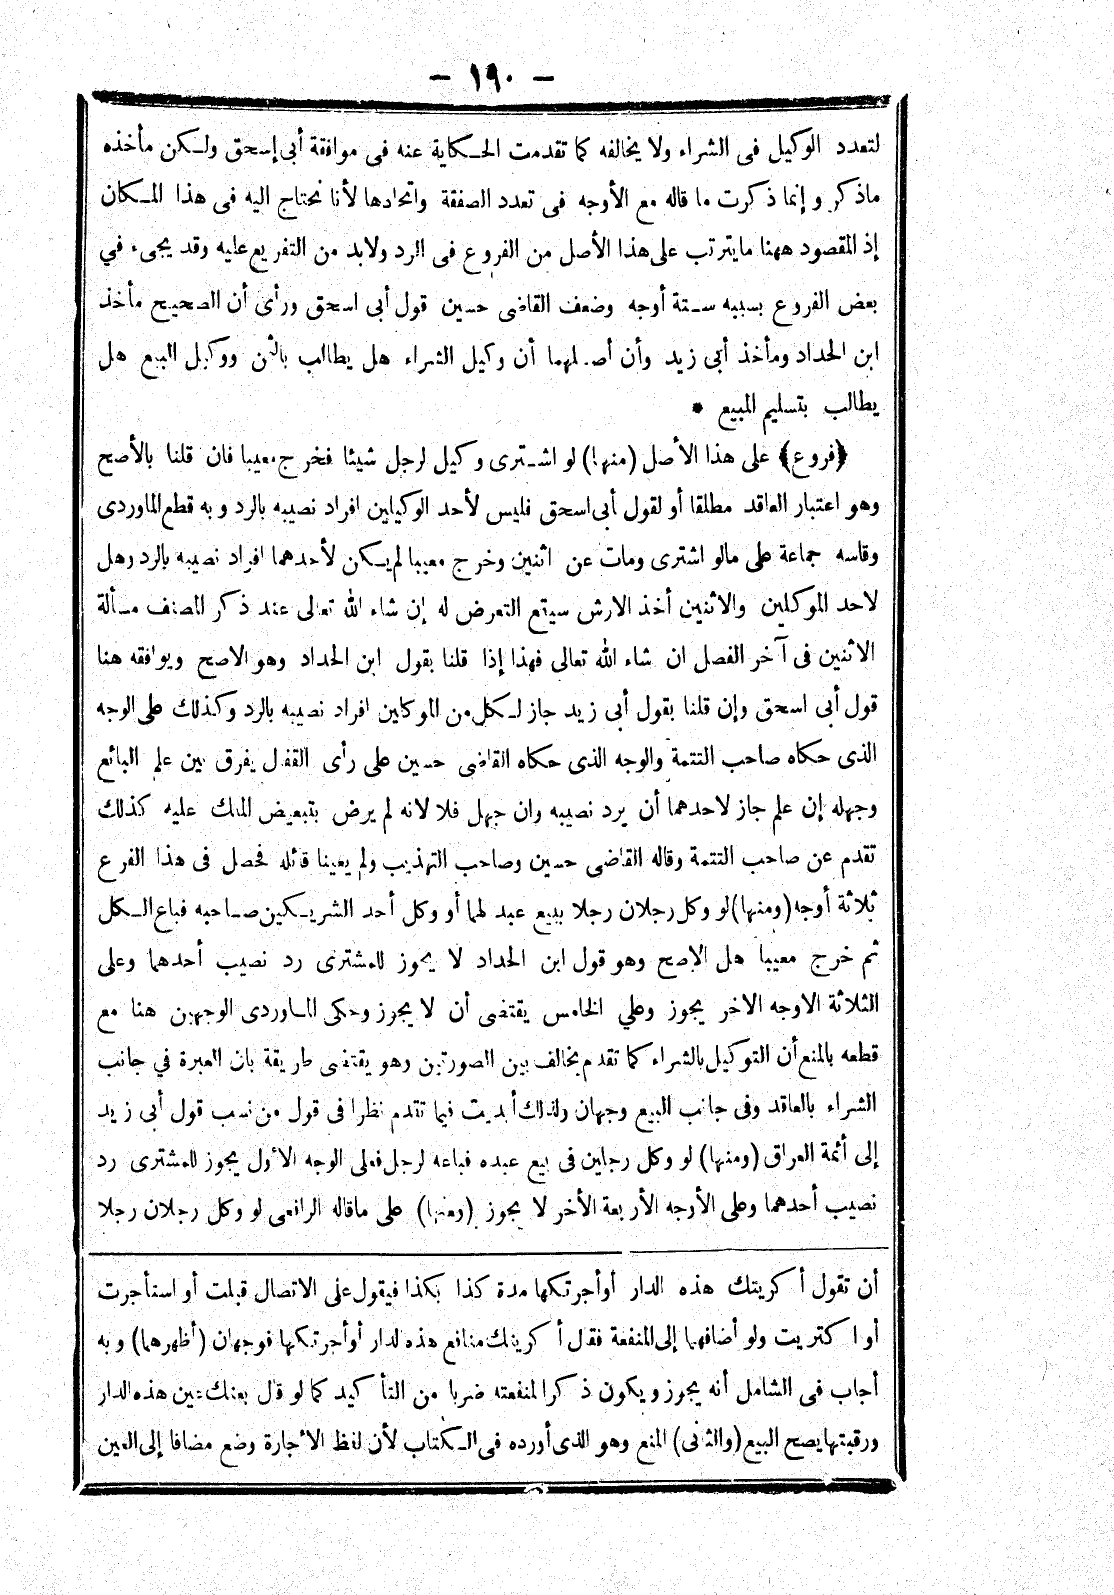 - ١٩٠ -
لتعدد الوكيل فى الشراء ولا يخالفه كما تقدمت الحكاية عنه فى موافقة أبى إسحق ولكن مأخذه
ماذكر و إنما ذكرت ما قاله مع الأوجه فى تعدد الصفقة واتحادها لأنا نحتاج اليه فى هذا المكان
إذ المقصود ههنا مايترتب على هذا الأصل من الفروع فى الرد ولابد من التفريع عليه وقد يجىء في
بعض الفروع بسببه ستة أوجه وضعف القاضى حسين قول أبى اسحق ورأى أن الصحيح مأخذ
ابن الحداد ومأخذ أبى زيد وأن أصلهما أن وكيل الشراء هل يطالب بالثمن ووكيل البيع هل
يطالب بتسليم المبيع *
﴿فروع﴾ على هذا الأصل (منها) لو اشترى وكيل لرجل شيئا فخرج معيبا فان قلنا بالأصح
وهو اعتبار العاقد مطلقا أو لقول أبى اسحق فليس لأحد الوكيلين افراد نصيبه بالرد و به قطع الماوردى
وقاسه جماعة على مالو اشترى ومات عن اثنين وخرج معيبا لم يكن لأحدهما افراد نصيبه بالرد وهل
لاحد الموكلين والاثنين أخذ الارش سيتع التعرض له إن شاء الله تعالى عند ذكر المصنف مسألة
الاثنين فى آخر الفصل ان شاء الله تعالى فهذا إذا قلنا بقول ابن الحداد وهو الاصح ويوافقه هنا
قول أبى اسحق وإن قلنا بقول أبى زيد جاز لكل من الموكلين افراد نصيبه بالرد وكذلك على الوجه
الذى حكاه صاحب التتمة والوجه الذى حكاه القاضى حسين على رأى القفال يفرق بين علم البائع
وجهله إن علم جاز لاحدهما أن يرد نصيبه وان جهل فلا لانه لم يرض بتبعيض الملك عليه كذلك
تقدم عن صاحب التتمة وقاله القاضى حسين وصاحب التهذيب ولم يعينا قائله فحصل فى هذا الفرع
ثلاثة أوجه (ومنها) لو وكل رجلان رجلا ببيع عبد لهما أو وكل أحد الشريكين صاحبه فباع الكل
ثم خرج معيبا هل الاصح وهو قول ابن الحداد لا يجوز للمشترى رد نصيب أحدهما وعلى
الثلاثة الاوجه الاخر يجوز وعلي الخامس يقتضى أن لا يجوز وحكى الماوردى الوجهين هنا مع
قطعه بالمنع أن التوكيل بالشراء كما تقدم بخالف بين الصورتين وهو يقتضى طريقة بان العبرة في جانب
الشراء بالعاقد وفى جانب البيع وجهان ولذلك أبديت فيما تقدم نظرا فى قول من نسب قول أبى زيد
إلى أئمة العراق (ومنها) لو وكل رجلين فى بيع عبده فباعه لرجل فعلى الوجه الأول يجوز للمشترى رد
نصيب أحدهما وعلى الأوجه الأربعة الأخر لا يجوز (ومنها) على ماقاله الرافعى لو وكل رجلان رجلا
أن تقول أكريتك هذه الدار أو أجرتكها مدة كذا بكذا فيقول على الاتصال قبلت أو استأجرت
أو اكتريت ولو أضافها إلى المنفعة فقال أكريتك منافع هذه الدار أو أجرتكها فوجهان (أظهرهما) و به
أجاب فى الشامل أنه يجوز و يكون ذكر المنفعته ضربا من التأكيد كما لو قال بعتك عين هذه الدار
ورقبتها يصح البيع (والثانى) المنع وهو الذى أورده فى الكتاب لأن لفظ الأجارة وضع مضافا إلى العين